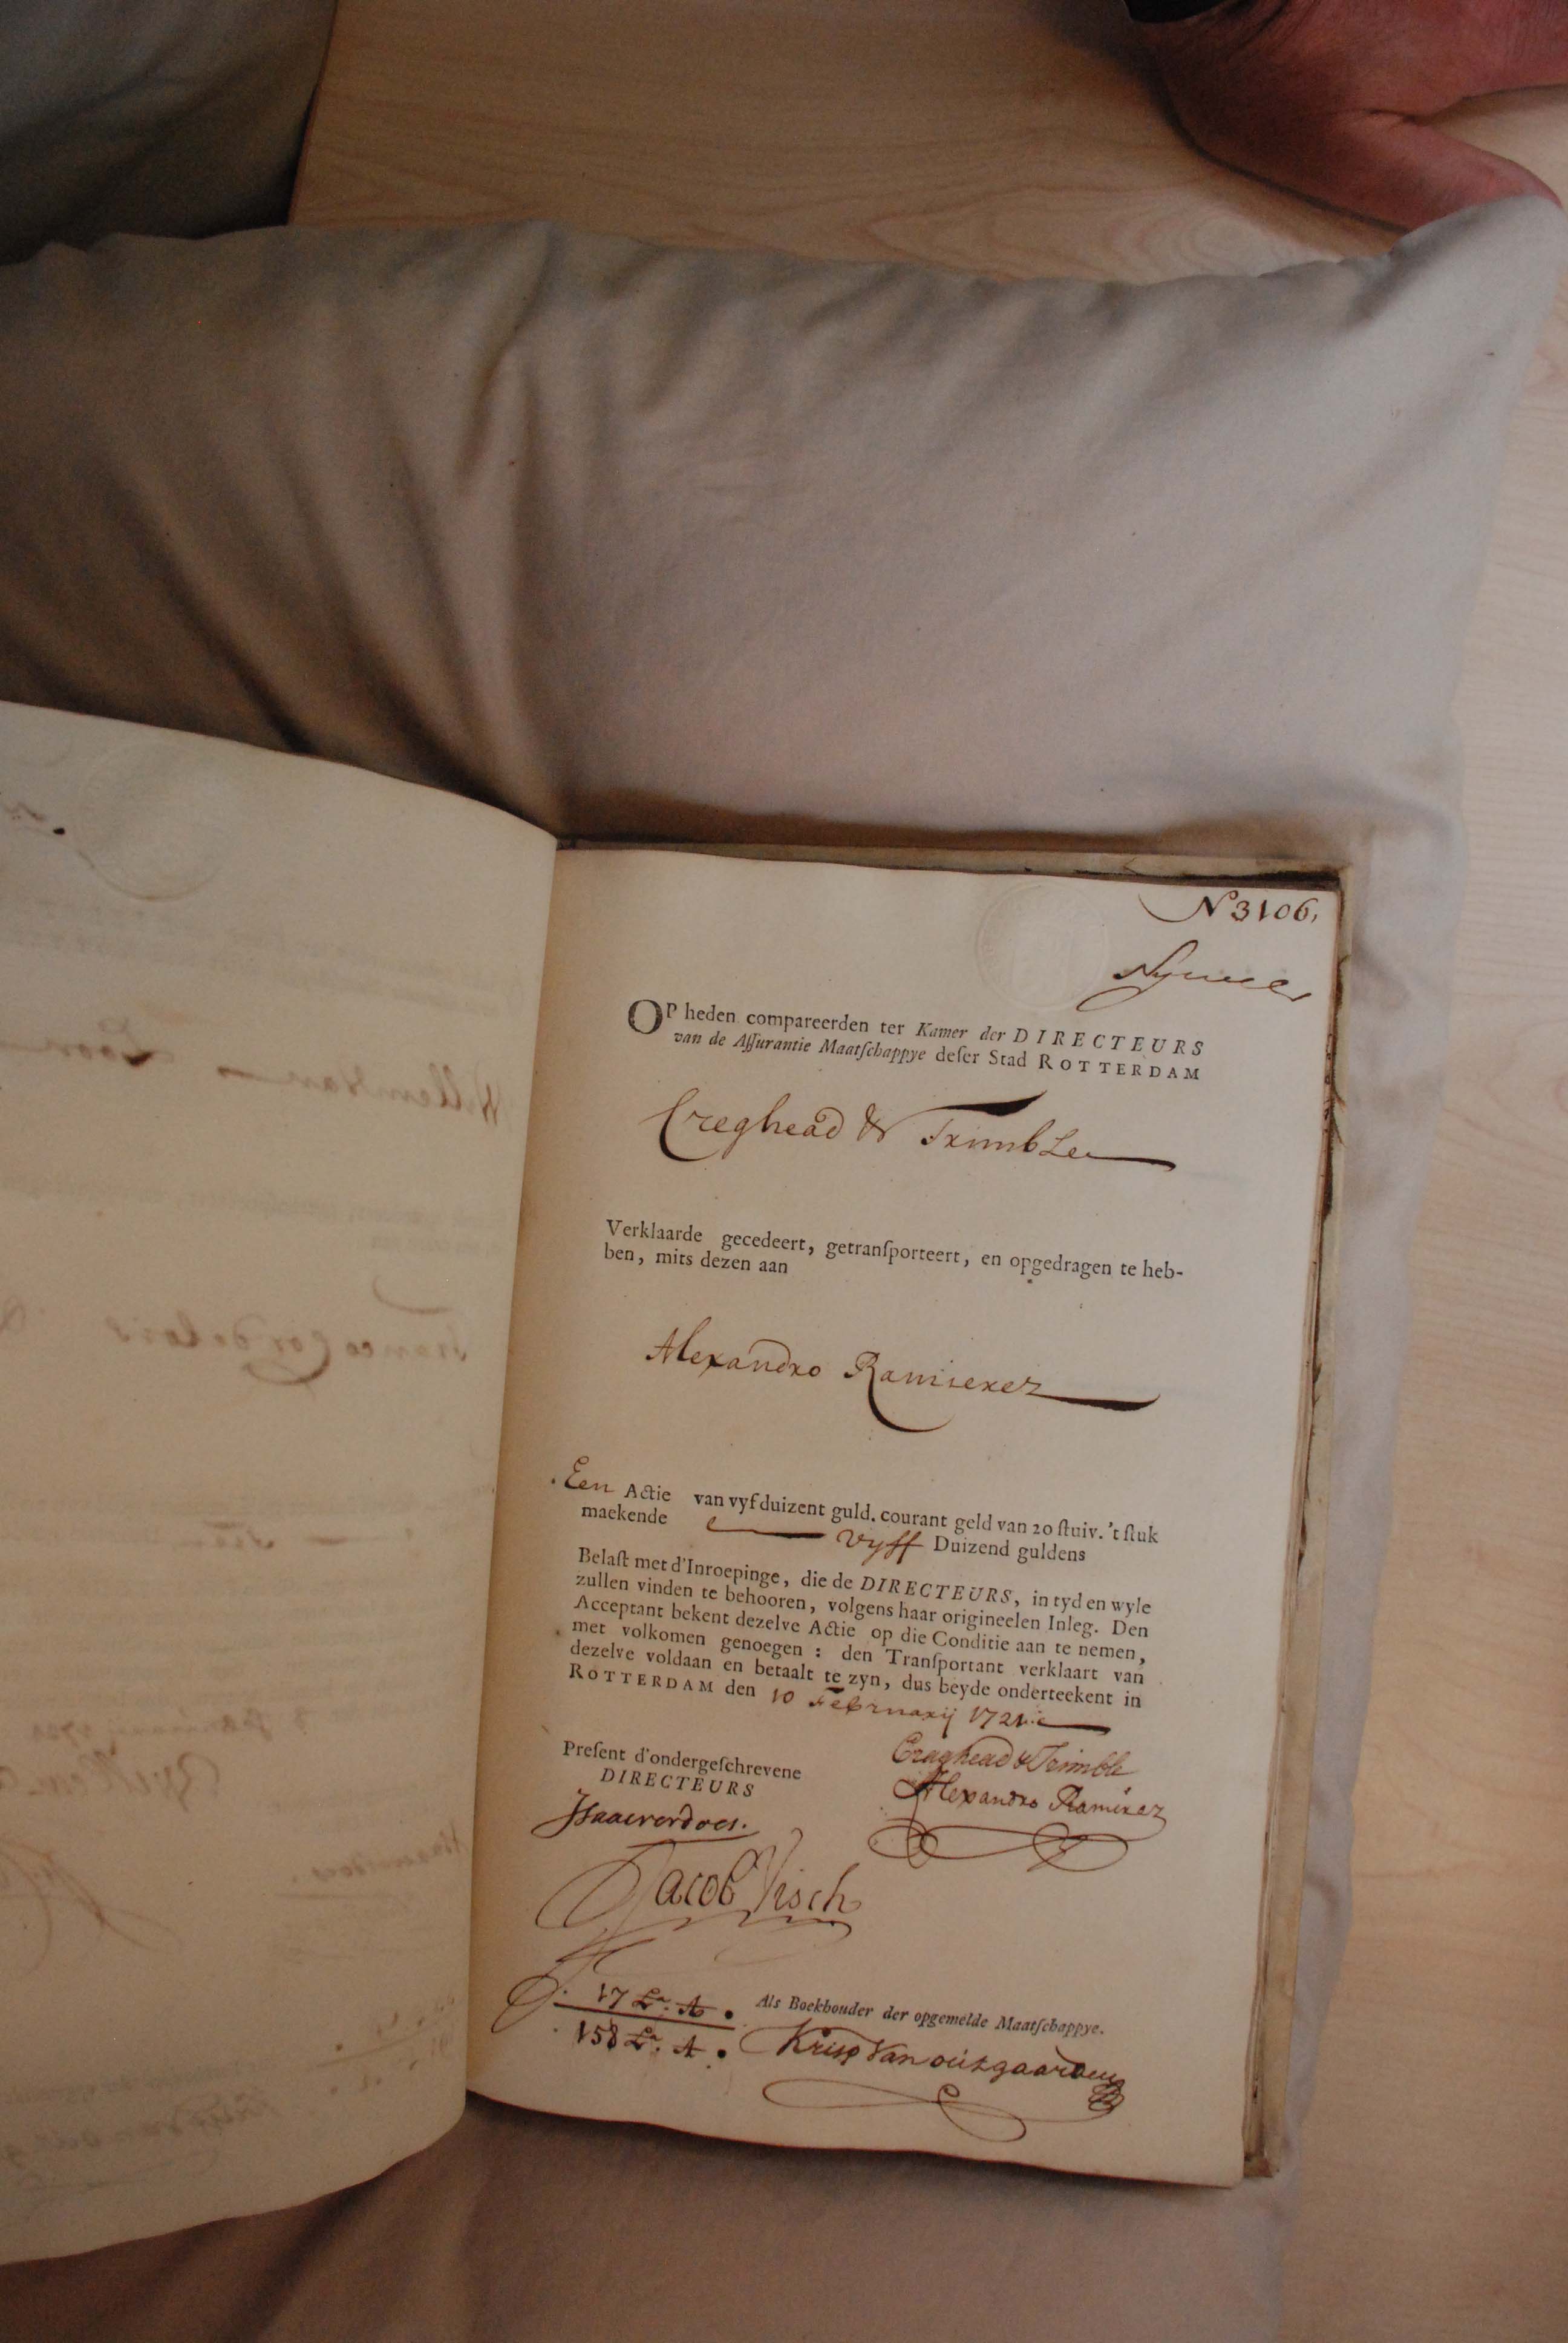 N 3106,
OP heden compareerden ter Kamer der DIRECTEURS
van de Aſſurantie Maatſchappye deſer Stad ROTTERDAM
Creghead & Trimble
Verklaarde gecedeert, getranſporteert, en opgedragen te heb-
ben, mits dezen aan
Alexandro Ramierez
Een Actie van vyf duizent guld. courant geld van 20 ſtuiv. 't ſtuk
maekende vyff Duizend guldens
Belaſt met d'Inroepinge, die de DIRECTEURS, in tyd en wyle
zullen vinden te behooren, volgens haar origineelen Inleg. Den
Acceptant bekent dezelve Actie op die Conditie aan te nemen,
met volkomen genoegen : den Tranſportant verklaart van
dezelve voldaan en betaalt te zyn, dus beyde onderteekent in
ROTTERDAM den 10 Februarij 1721
Preſent d'ondergeſchrevene
DIRECTEURS
Craghead & Trimble
Alexandro Ramirez
Isaacverdoes.
Jacob Visch
17 Lr. A.
158 Lr. A.
Als Boekhouder der opgemelde Maatſchappye.
Krisp Van outgaarden